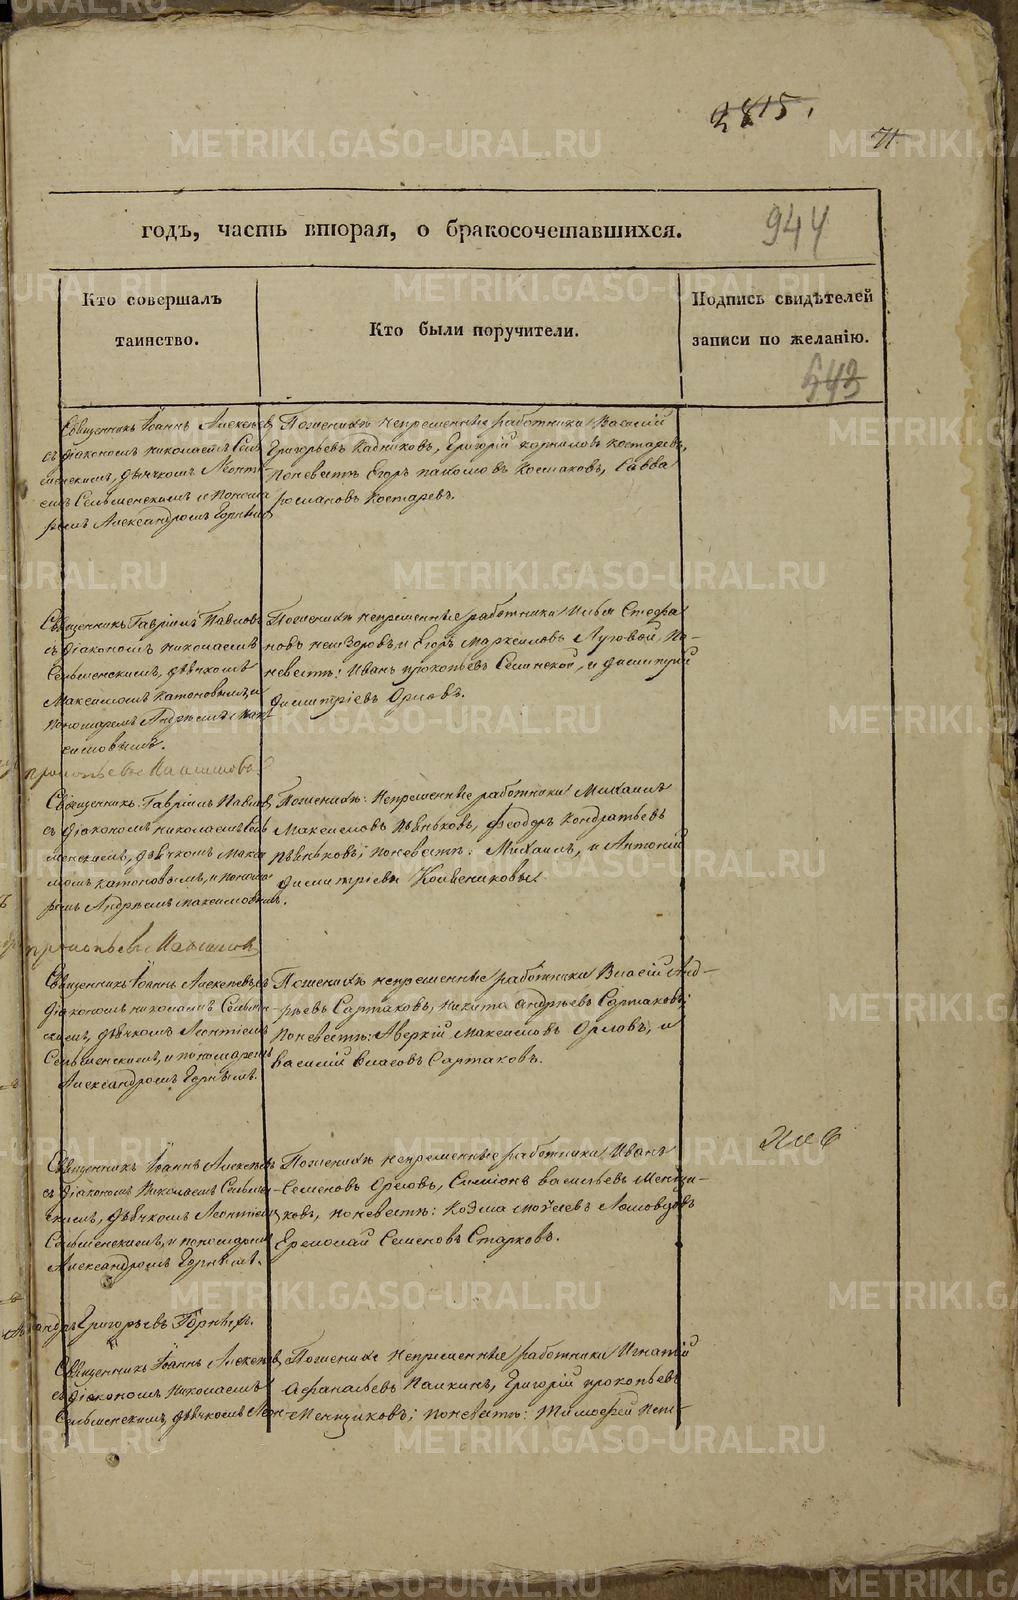 2815.
71
годъ, часть вторая, о бракосочетавшихся.
944
Кто совершалъ
таинство.
Кто были поручители.
Подпись свидѣтелей
записи по желанію.
543
Священникъ Іоаннъ Алексѣевъ
съ діакономъ Николаемъ Сель
менскимъ, дьячкомъ Леонті
емъ Сельменскимъ и понома
ремъ Александромъ Горнымъ
По женихѣ непремѣнные работники Василій
Григорьевъ Кадниковъ, Григорій Корниловъ Костаревъ,
по невѣстѣ Егоръ Пахомовъ Космаковъ, Савва
Романовъ Костаревъ.
Священникъ Гавріилъ Павловъ
съ діакономъ Николаемъ
Сельменскимъ, дьячкомъ
Максимомъ Катоновымъ, и
пономаремъ Андреемъ Мак
симовымъ.
По женихѣ непремѣнные работники Илья Стефа
новъ Неиздровъ, и Егоръ Маркеловъ Луговой, по
невѣстѣ: Иванъ Прокопьевъ Селинской, и Димитрій
Димитріевъ Орловъ.
Прокопьевъ
Священникъ Гавріилъ Павловъ
съ діакономъ Николаемъ Сель
менскимъ, дьячкомъ Макси
момъ Катоновымъ, и понома
ремъ Андреемъ Максимовымъ.
По женихѣ: непремѣнные работники Михаилъ
Максимовъ Пѣньковъ, Феодоръ Кондратьевъ
Пѣньковъ; по невѣстѣ: Михаилъ, и Антоній
Димитріевы
Прокопьевъ
Священникъ Іоаннъ Алексѣевъ съ
діакономъ Николаемъ Сельмен
скимъ, дьячкомъ Леонтіемъ
Сельменскимъ, и пономаремъ
Александромъ Горнымъ.
По женихѣ непремѣнные работники Власій Анд-
рѣевъ Сартаковъ, Никита Андрѣевъ Сартаковъ;
по невѣстѣ: Аверкій Максимовъ Орловъ, и
Василій Власовъ Сартаковъ.
Священникъ Іоаннъ Алексѣевъ
съ діакономъ Николаемъ Сельмен
скимъ, дьячкомъ Леонтіемъ
Сельменскимъ, и пономаремъ
Александромъ Горнымъ.
По женихѣ непремѣнные работники Иванъ
Семеновъ Орловъ, Симеонъ Васильевъ Менщи-
ковъ, по невѣстѣ: Козма Моѵсеевъ Ломовцовъ
Ермолай Семеновъ Старковъ.
Григорьевъ Горныхъ.
Священникъ Іоаннъ Алексѣевъ
съ діакономъ Николаемъ
Сельменскимъ, дьячкомъ Леон-
По женихѣ непремѣнные работники Игнатій
Афанасьевъ Палкинъ, Григорій Прокопьевъ
Менщиковъ; по невѣстѣ: Тимофей Пет-
METRIKI.GASO-URAL.RU